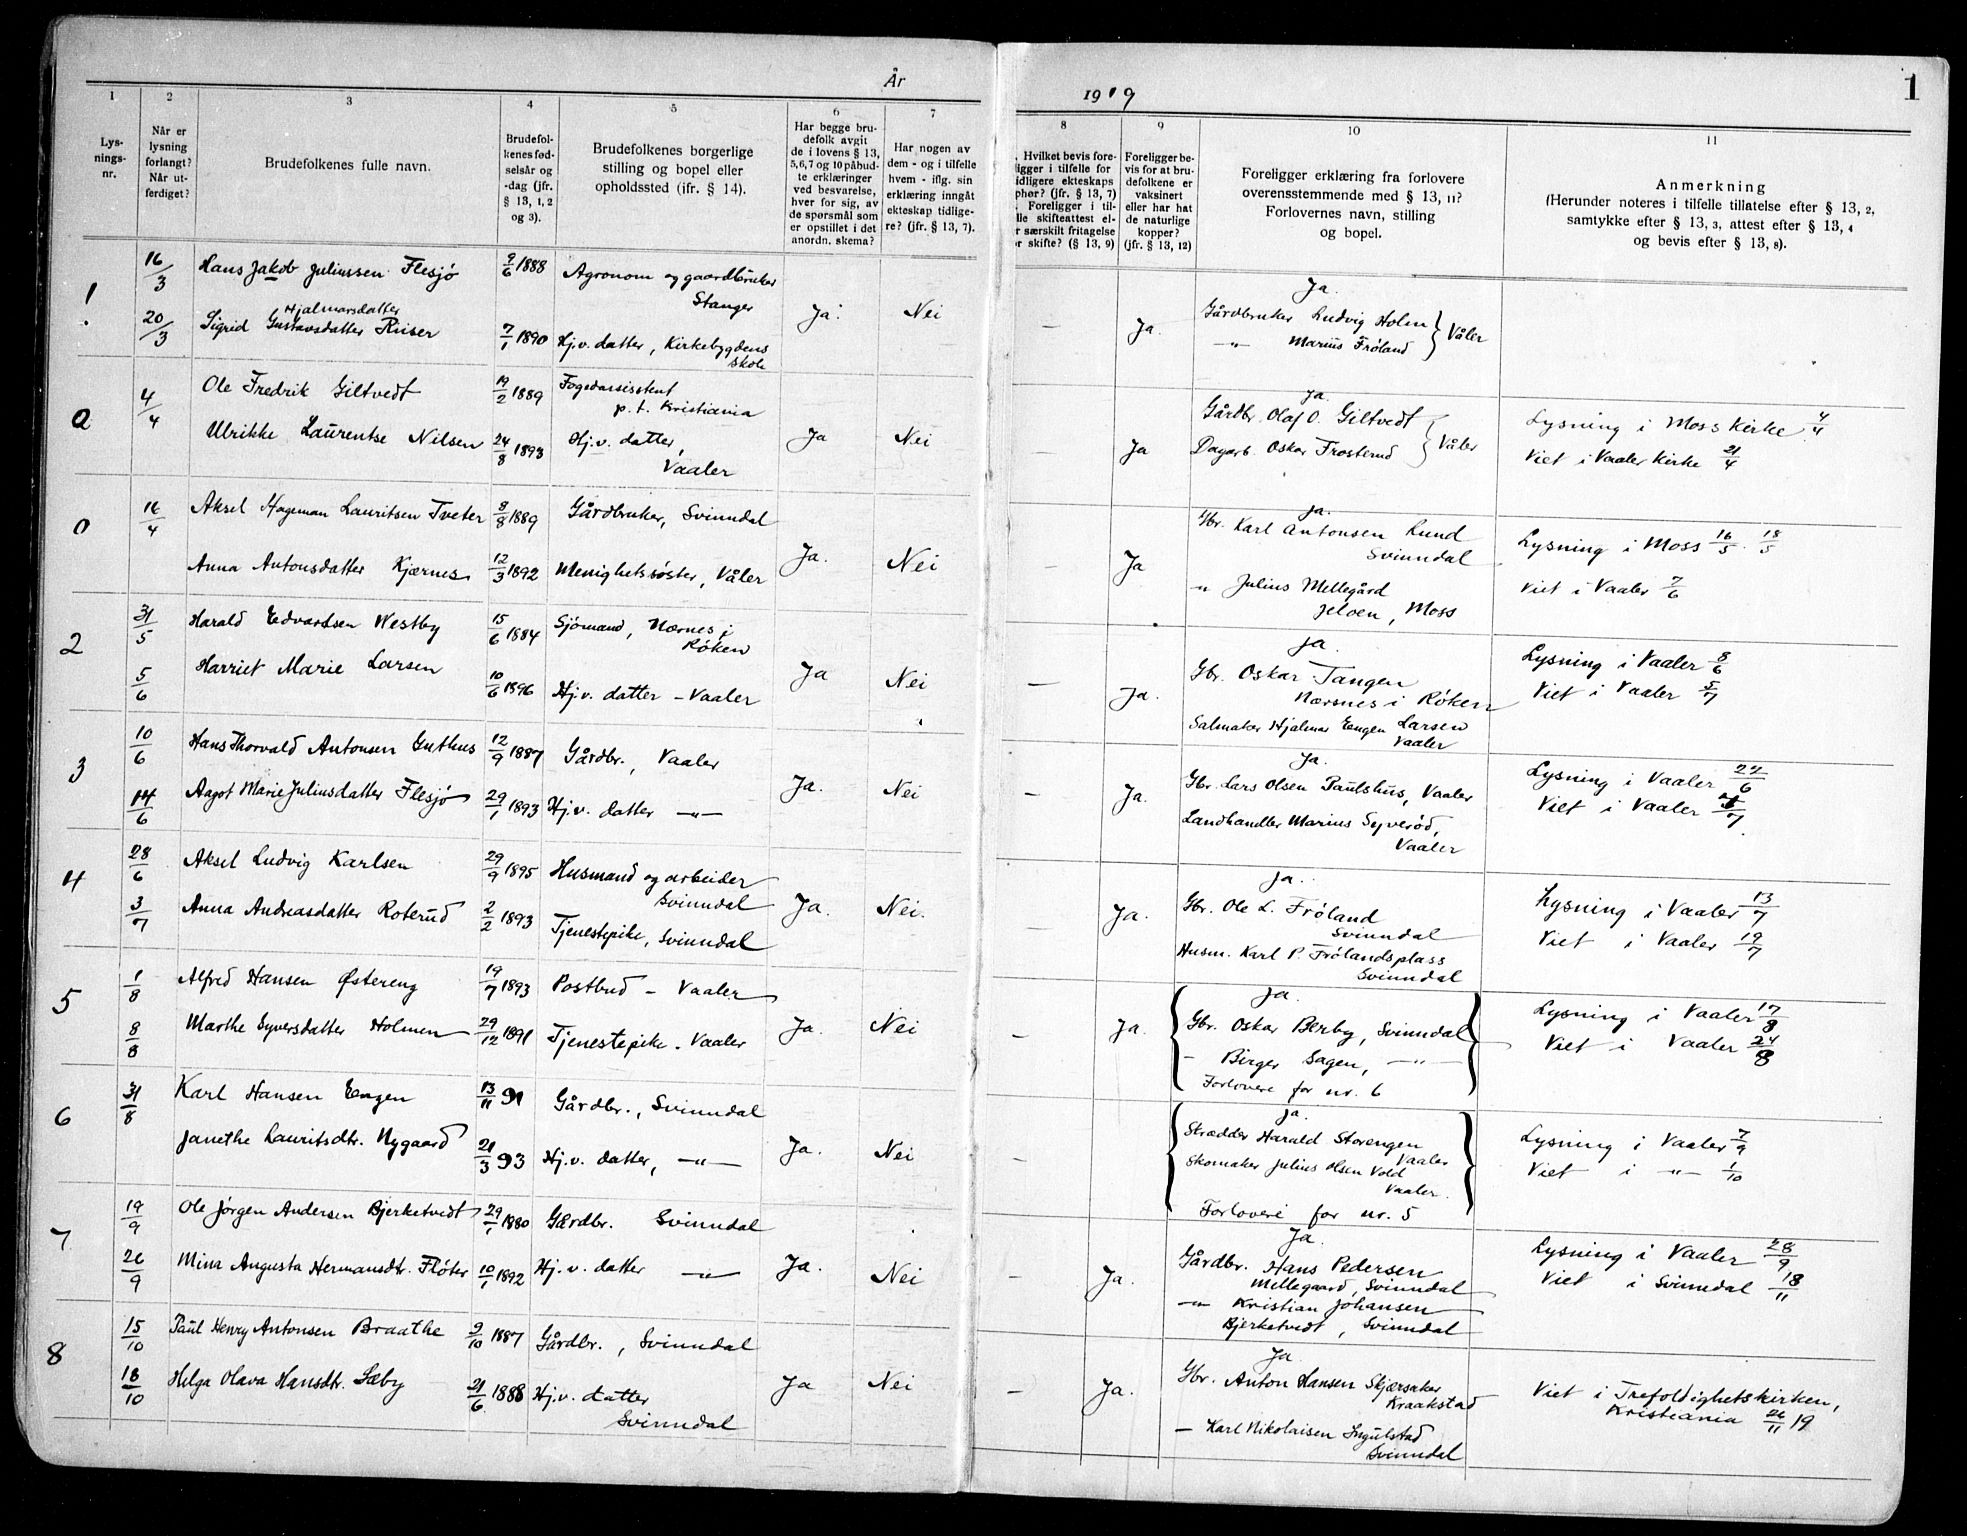 År
1919
1
1
2
3
4
5
6
7
8
9
10
11
Lys-
nings-
nr.
Når er
lysning
forlangt?
Når ut-
ferdiget?
Brudefolkenes fulle navn.
Brudefol-
kenes fød-
selsår og
-dag (jfr.
§ 13, 1, 2
og 3).
Brudefolkenes borgerlige
stilling og bopel eller
opholdssted (ifr. § 14).
Har begge bru-
defolk avgit
de i lovens § 13,
5,6,7 og 10 påbud-
te erklæringer
ved besvarelse,
hver for sig, av
de spørsmål som
er opstillet i det
anordn. skema?
Har nogen av
dem - og i tilfelle
hvem - iflg. sin
erklæring inngåt
ekteskap tidlige-
re? (jfr. § 13, 7).
. Hvilket bevis fore-
ligger i tilfelle for
idligere ekteskaps
phør? (jfr. § 13, 7)
. Foreligger i til-
lle skifteattest el-
r særskilt fritagelse
or skifte? (§ 13, 9)
Foreligger be-
vis for at bru-
defolkene er
vaksinert
eller har hat
de naturlige
kopper?
(jfr. § 13, 12)
Foreligger erklæring fra forlovere
overensstemmende med § 13, 11?
Forlovernes navn, stilling
og bopel.
Anmerkning
(Herunder noteres i tilfelle tillatelse efter § 13, 2,
samtykke efter § 13, 3, attest efter § 13, 4
og bevis efter § 13, 8).
1
16/3
20/3
Hans Jakob Juliussen Flesjø
Hjalmarsdatter
Sigrid Gustavsdatter Riiser
9/6 1888
7/1 1890
Agronom og gaardbruker
Stange
Hj.v. datter, Kirkebygdens
skole
Ja.
Nei
—
Ja.
Ja.
Gårdbruker Ludvig Holm } Våler
—"— Marius Frøland
0
4/4
Ole Fredrik Giltvedt
Ulrikke Laurentse Nilsen
19/2 1889
24/8 1893
Fogedassistent
p.t. Kristiania
Hj.v. datter,
Vaaler
Ja
Nei
—
Ja
Ja.
Gårdbr. Olaf O. Giltvedt } Våler
Dagarb. Oskar Frosterud
Lysning i Moss Kirke 4/4
Viet i Vaaler Kirke 21/4
0
16/4
Aksel Hageman Lauritsen Tveter
Anna Antonsdatter Kjærnes
8/8 1889
12/3 1892
Gårdbruker, Svinndal
Menighetssøster, Våler
Ja.
Nei
—
Ja
Ja.
Gbr. Karl Antonsen Lund
Svinndal
" Julius Mellegård
Jeløen, Moss
Lysning i Moss 16/5. 18/5
Viet i Vaaler 7/6
2
31/5
5/6
Harald Edvardsen Westby
Harriet Marie Larsen
15/6 1884
10/6 1896
Sjømand, Nærnes i
Røken
Hj.v. datter - Vaaler
Ja
Nei
—
Ja.
Ja.
Gbr. Oskar Tangen
Nærsnes i Røken
Salmaker Hjalmar Engen Larsen
Vaaler
Lysning i Vaaler 8/6
Viet i Vaaler 5/7
3
10/6
14/6
Hans Thorvald Antonsen Guthus
Aagot Marie Juliusdatter Flesjø
12/9 1887
29/1 1893
Gårdbr., Vaaler
Hj.v. datter —"—
Ja.
Nei
—
Ja.
Ja.
Gbr. Lars Olsen Paulshus, Vaaler
Landhandler Marius Syverød,
Vaaler
Lysning i Vaaler 22/6
Viet i Vaaler
4
28/6
3/7
Aksel Ludvig Karlsen
Anna Andreasdatter Roterud
29/9 1895
2/2 1893
Husmand og arbeider
Svinndal
Tjenestepike, Svinndal
Ja.
Nei.
Ja.
Ja.
Gbr. Ole L. Frøland
Svinndal
Husm. Karl P. Frølandsplass
Svinndal
Lysning i Vaaler 13/7
Viet i Vaaler 19/7
5
1/8
8/8
Alfred Hansen Østereng
Marthe Syversdatter Holmen
19/7 1893
29/12 1891
Postbud - Vaaler
Tjenestepike - Vaaler
Ja.
Nei
—
Ja.
Ja.
Gbr. Oskar Berby, Svinndal
— Birger Sagen, —"—
Forlovere for nr. 6
Lysning i Vaaler 17/8
Viet i Vaaler 24/8
6
31/8
Karl Hansen Engen
Janethe Lauritsdtr. Nygaard
13/11 91
21/3 93
Gårdbr., Svinndal
Hj.v. datter, —"—
Ja.
Nei
—
Ja.
Skrædder Harald Storengen
Vaaler
Skomaker Julius Olsen Vold
Vaaler.
Forlovere for nr. 5
Lysning i Vaaler 7/9
Viet i —"— 1/10
7
19/9
26/9
Ole Jørgen Andersen Bjerketvedt
Mina Augusta Hermansdtr. Fløter
29/1 1880
10/1 1892
Gårdbr. Svinndal
Hj.v. datter —"—
Ja.
Nei
—
Ja.
Ja.
Gårdbr. Hans Pedersen
Mellegaard, Svinndal
—"— Kristian Johansen
Bjerketvedt, Svinndal
Lysning i Vaaler 28/9
Viet i Svinndal 18/11
8
15/10
18/10
Paul Henry Antonsen Braathe
Helga Olava Hansdtr. Sæby
9/10 1887
21/6 1888
Gårdbr., Svinndal
Hj.v. datter
Svinndal
Ja
Nei
—
Ja.
Ja
Gbr. Anton Hansen Skjærsaker
Kraakstad
— Karl Nikolaisen Ingulstad
Svinndal
Viet i Trefoldighetskirken,
Kristiania 26/11 19